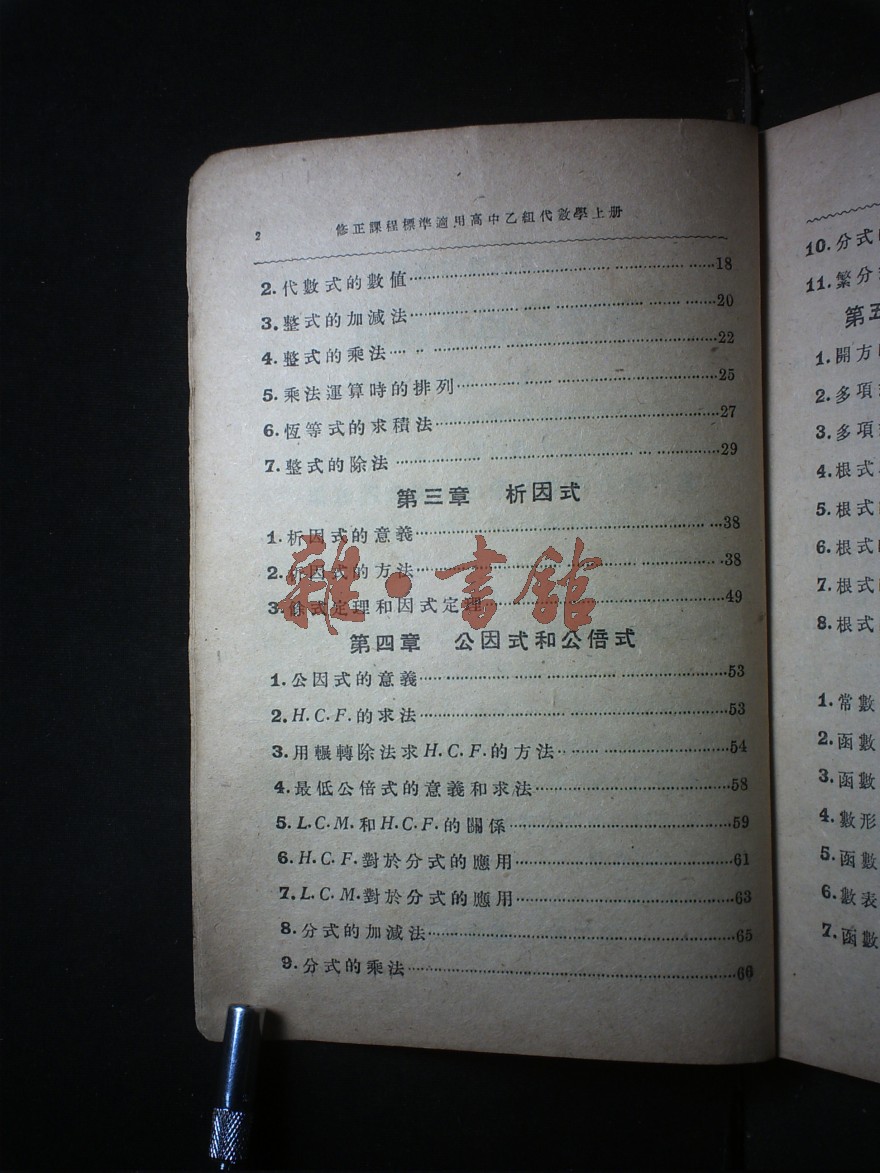 2 修正課程標準適用高中乙組代數學上册
2.代數式的數值……18
3.整式的加減法……20
4.整式的乘法……22
5.乘法運算時的排列……25
6.恆等式的求積法……27
7.整式的除法……29
第三章 析因式
1.析因式的意義……38
2.析因式的方法……38
3.餘式定理和因式定理……49
第四章 公因式和公倍式
1.公因式的意義……53
2.H.C.F.的求法……53
3.用輾轉除法求H.C.F.的方法……54
4.最低公倍式的意義和求法……58
5.L.C.M.和H.C.F.的關係……59
6.H.C.F.對於分式的應用……61
7.L.C.M.對於分式的應用……63
8.分式的加減法……65
9.分式的乘法……66
雜·書館
10.分式
11.繁分
第五
1.開方
2.多項
3.多項
4.根式
5.根式
6.根式
7.根式
8.根式
1.常數
2.函數
3.函數
4.數形
5.函數
6.數表
7.函數